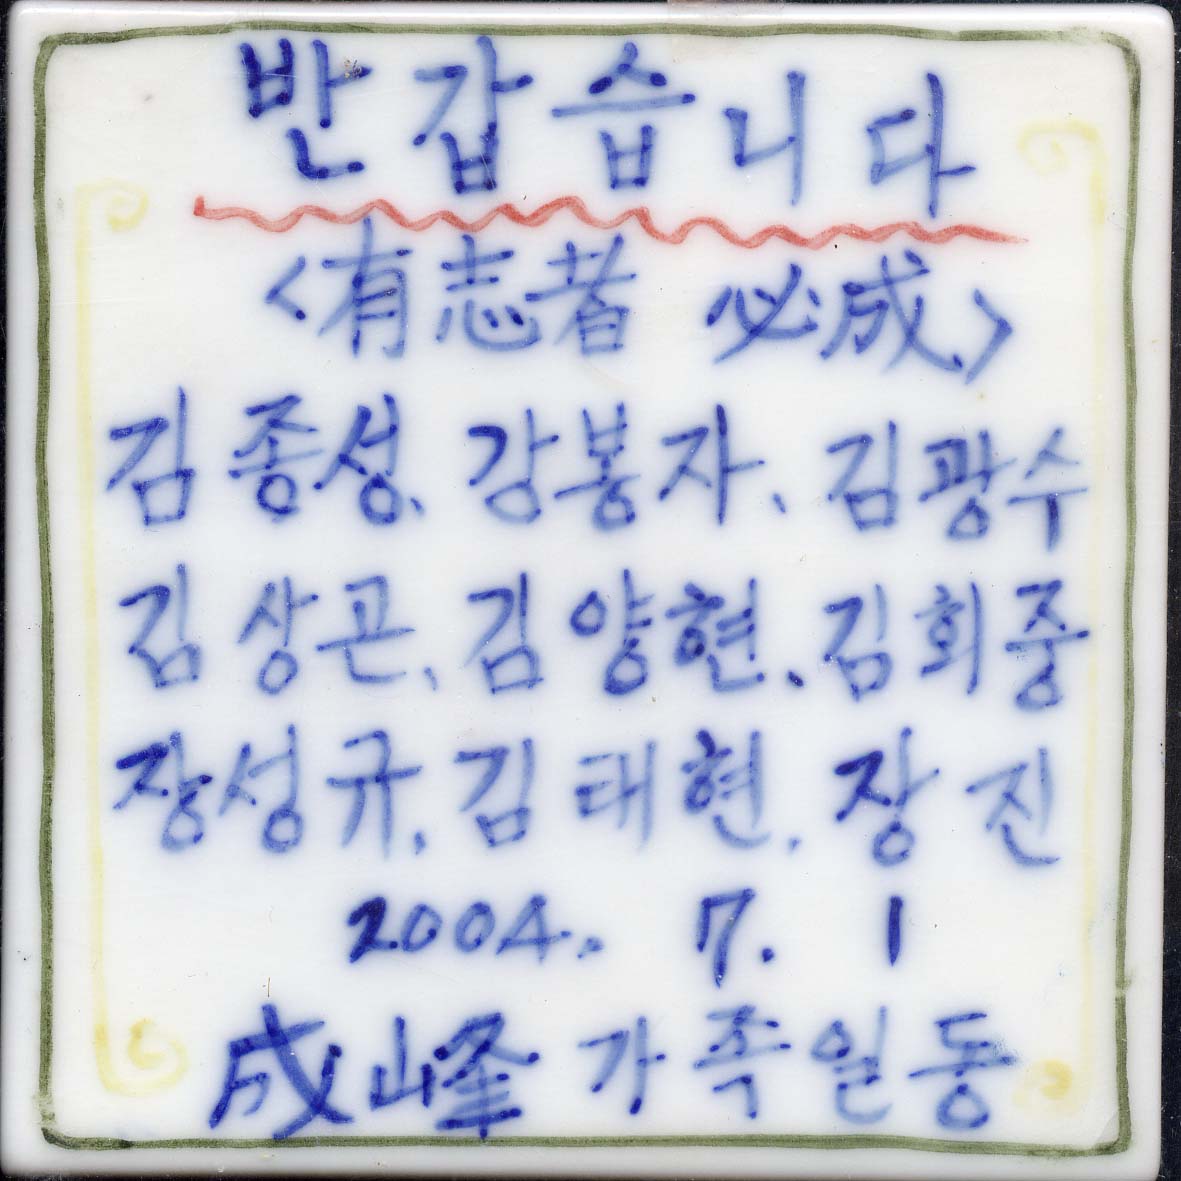 반갑습니다
<有志者 必成>
김종성, 강봉자, 김광수
김상곤, 김양현, 김회중
장성규, 김태현, 장진
2004. 7. 1
成峰 가족일동